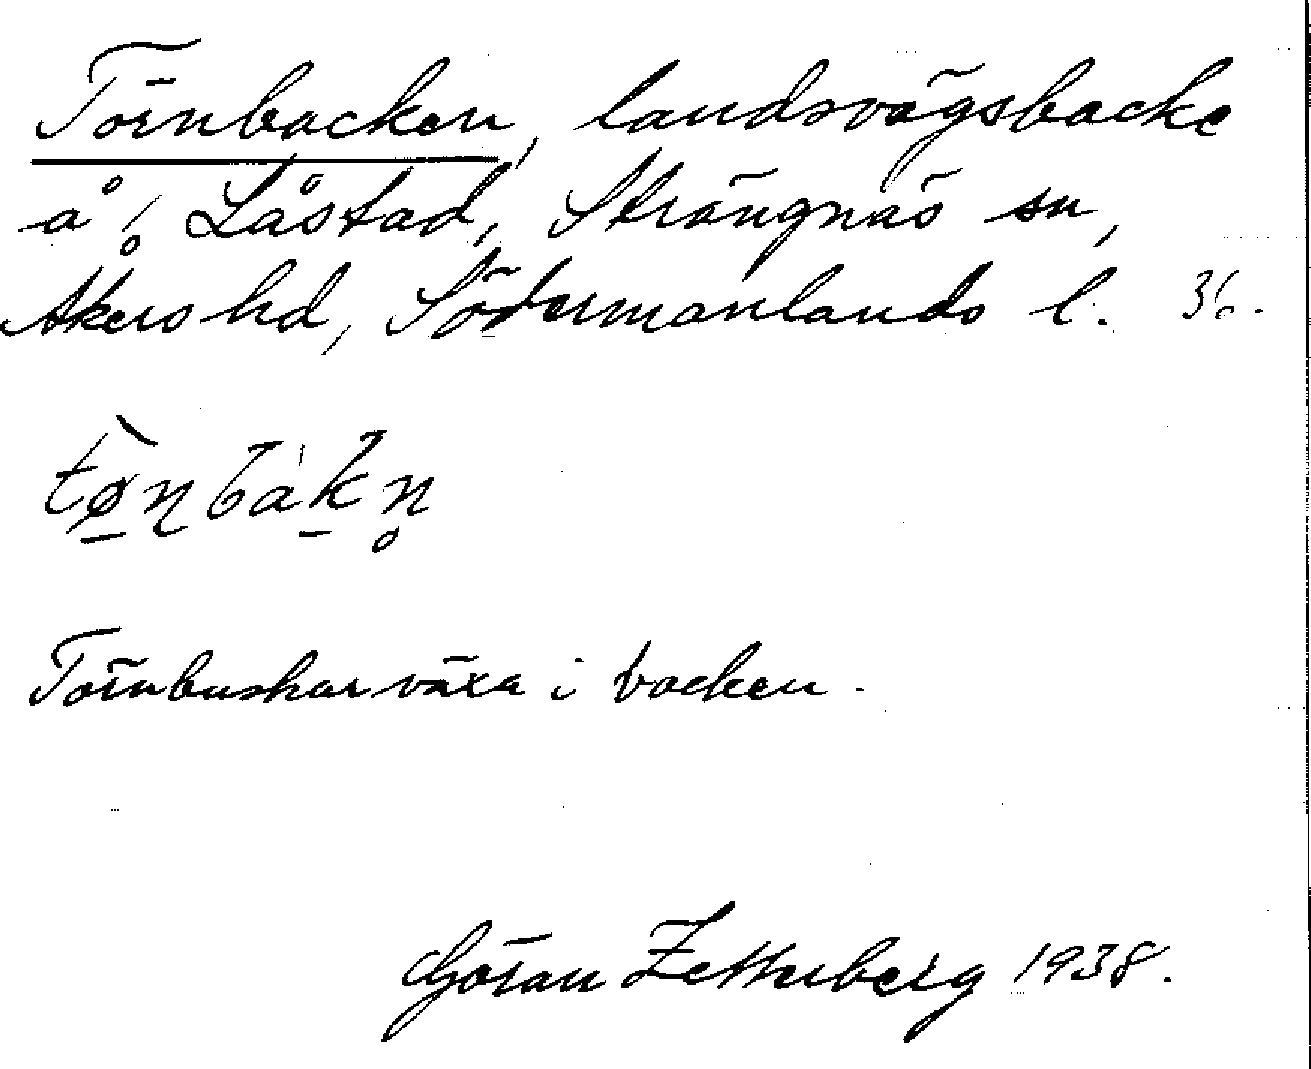 Törnbacken, landsvägsbacke
å Låstad, Strängnäs sn,
Åkers hd, Södermanlands l. 36.
Törnbuskar växa i backen.
Göran Zetterberg 1938.